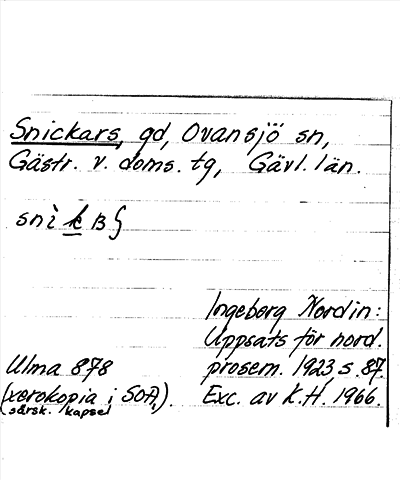 Snickars, gd, Ovansjö sn,
Gästr. v. doms. tg, Gävl. län.
Ingeborg Nordin:
Uppsats för nord.
Ulma 878 prosem. 1923, s. 87.
(xerokopia i SOA, särsk. kapsel). Exc. av K.H. 1966.